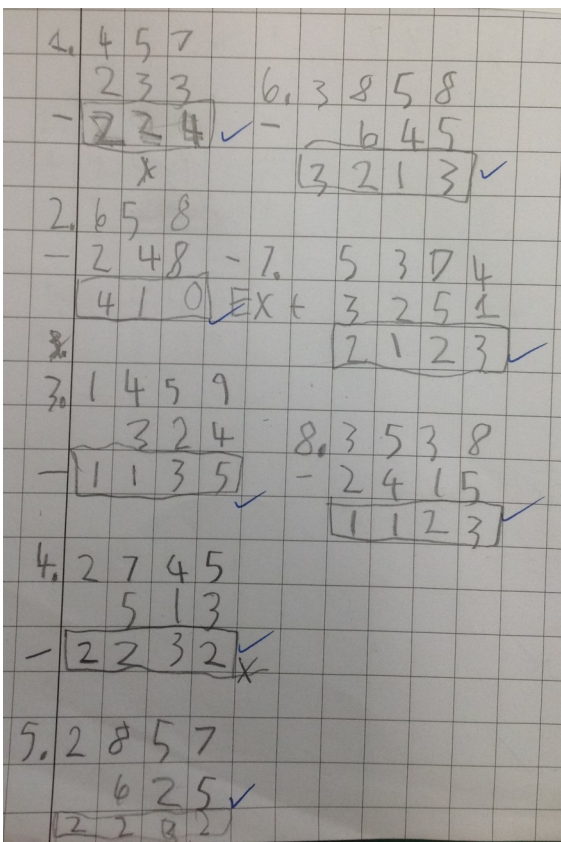 1. 4 5 7
2 3 3
- 2 2 4 ✓
x
2. 6 5 8
- 2 4 8
4 1 0 ✓
3. 1 4 5 9
3 2 4
- 1 1 3 5 ✓
4. 2 7 4 5
5 1 3
- 2 2 3 2 ✓
x
5. 2 8 5 7
6 2 5 ✓
2 2 3 2
6. 3 8 5 8
- 6 4 5
3 2 1 3 ✓
- 7. 5 3 7 4
Ex+ 3 2 5 1
2 1 2 3 ✓
8. 3 5 3 8
- 2 4 1 5
1 1 2 3 ✓